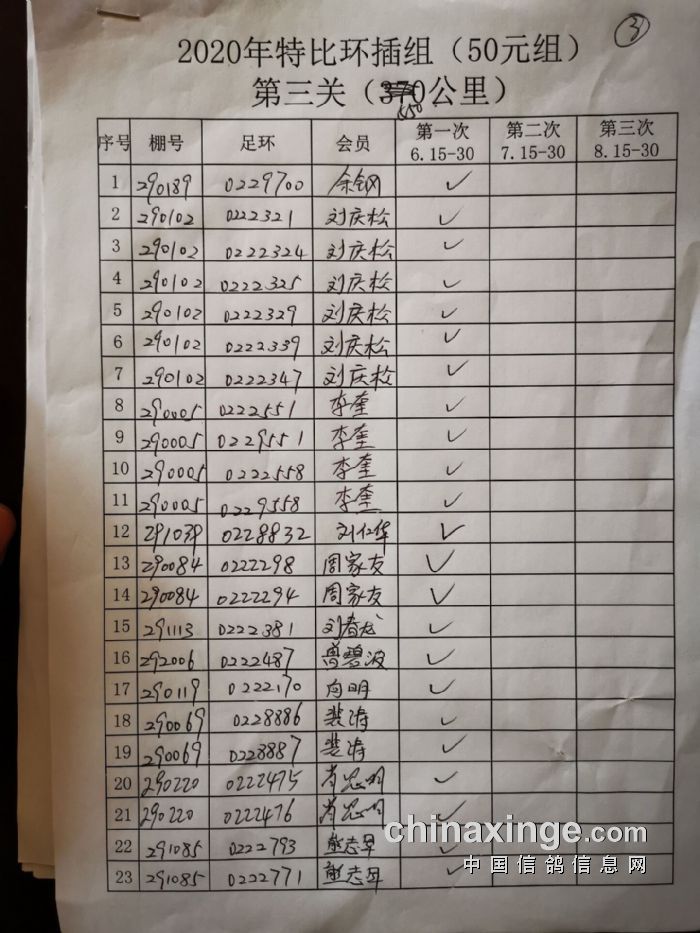 ③
2020年特比环插组（50元组）
第三关（370公里）
550
序号 棚号 足环 会员 第一次 6.15-30 第二次 7.15-30 第三次 8.15-30
1 290189 0229700 余钢 ✓
2 290102 0222321 刘庆松 ✓
3 290102 0222324 刘庆松 ✓
4 290102 0222325 刘庆松 ✓
5 290102 0222329 刘庆松 ✓
6 290102 0222339 刘庆松 ✓
7 290102 0222347 刘庆松 ✓
8 290005 0222551 李奎 ✓
9 290005 0229551 李奎 ✓
10 290005 0222558 李奎 ✓
11 290005 0229558 李奎 ✓
12 291039 0228832 刘仁华 ✓
13 290084 0222298 周家友 ✓
14 290084 0222294 周家友 ✓
15 291113 0222381 刘春龙 ✓
16 292006 0222487 曾碧波 ✓
17 290119 0222170 向明 ✓
18 290069 0228886 裴涛 ✓
19 290069 0228887 裴涛 ✓
20 290220 0222475 肖忠明 ✓
21 290220 0222476 肖忠明 ✓
22 291085 0222793 ✓
23 291085 0222771 ✓
chinaxinge.com
中国信鸽信息网